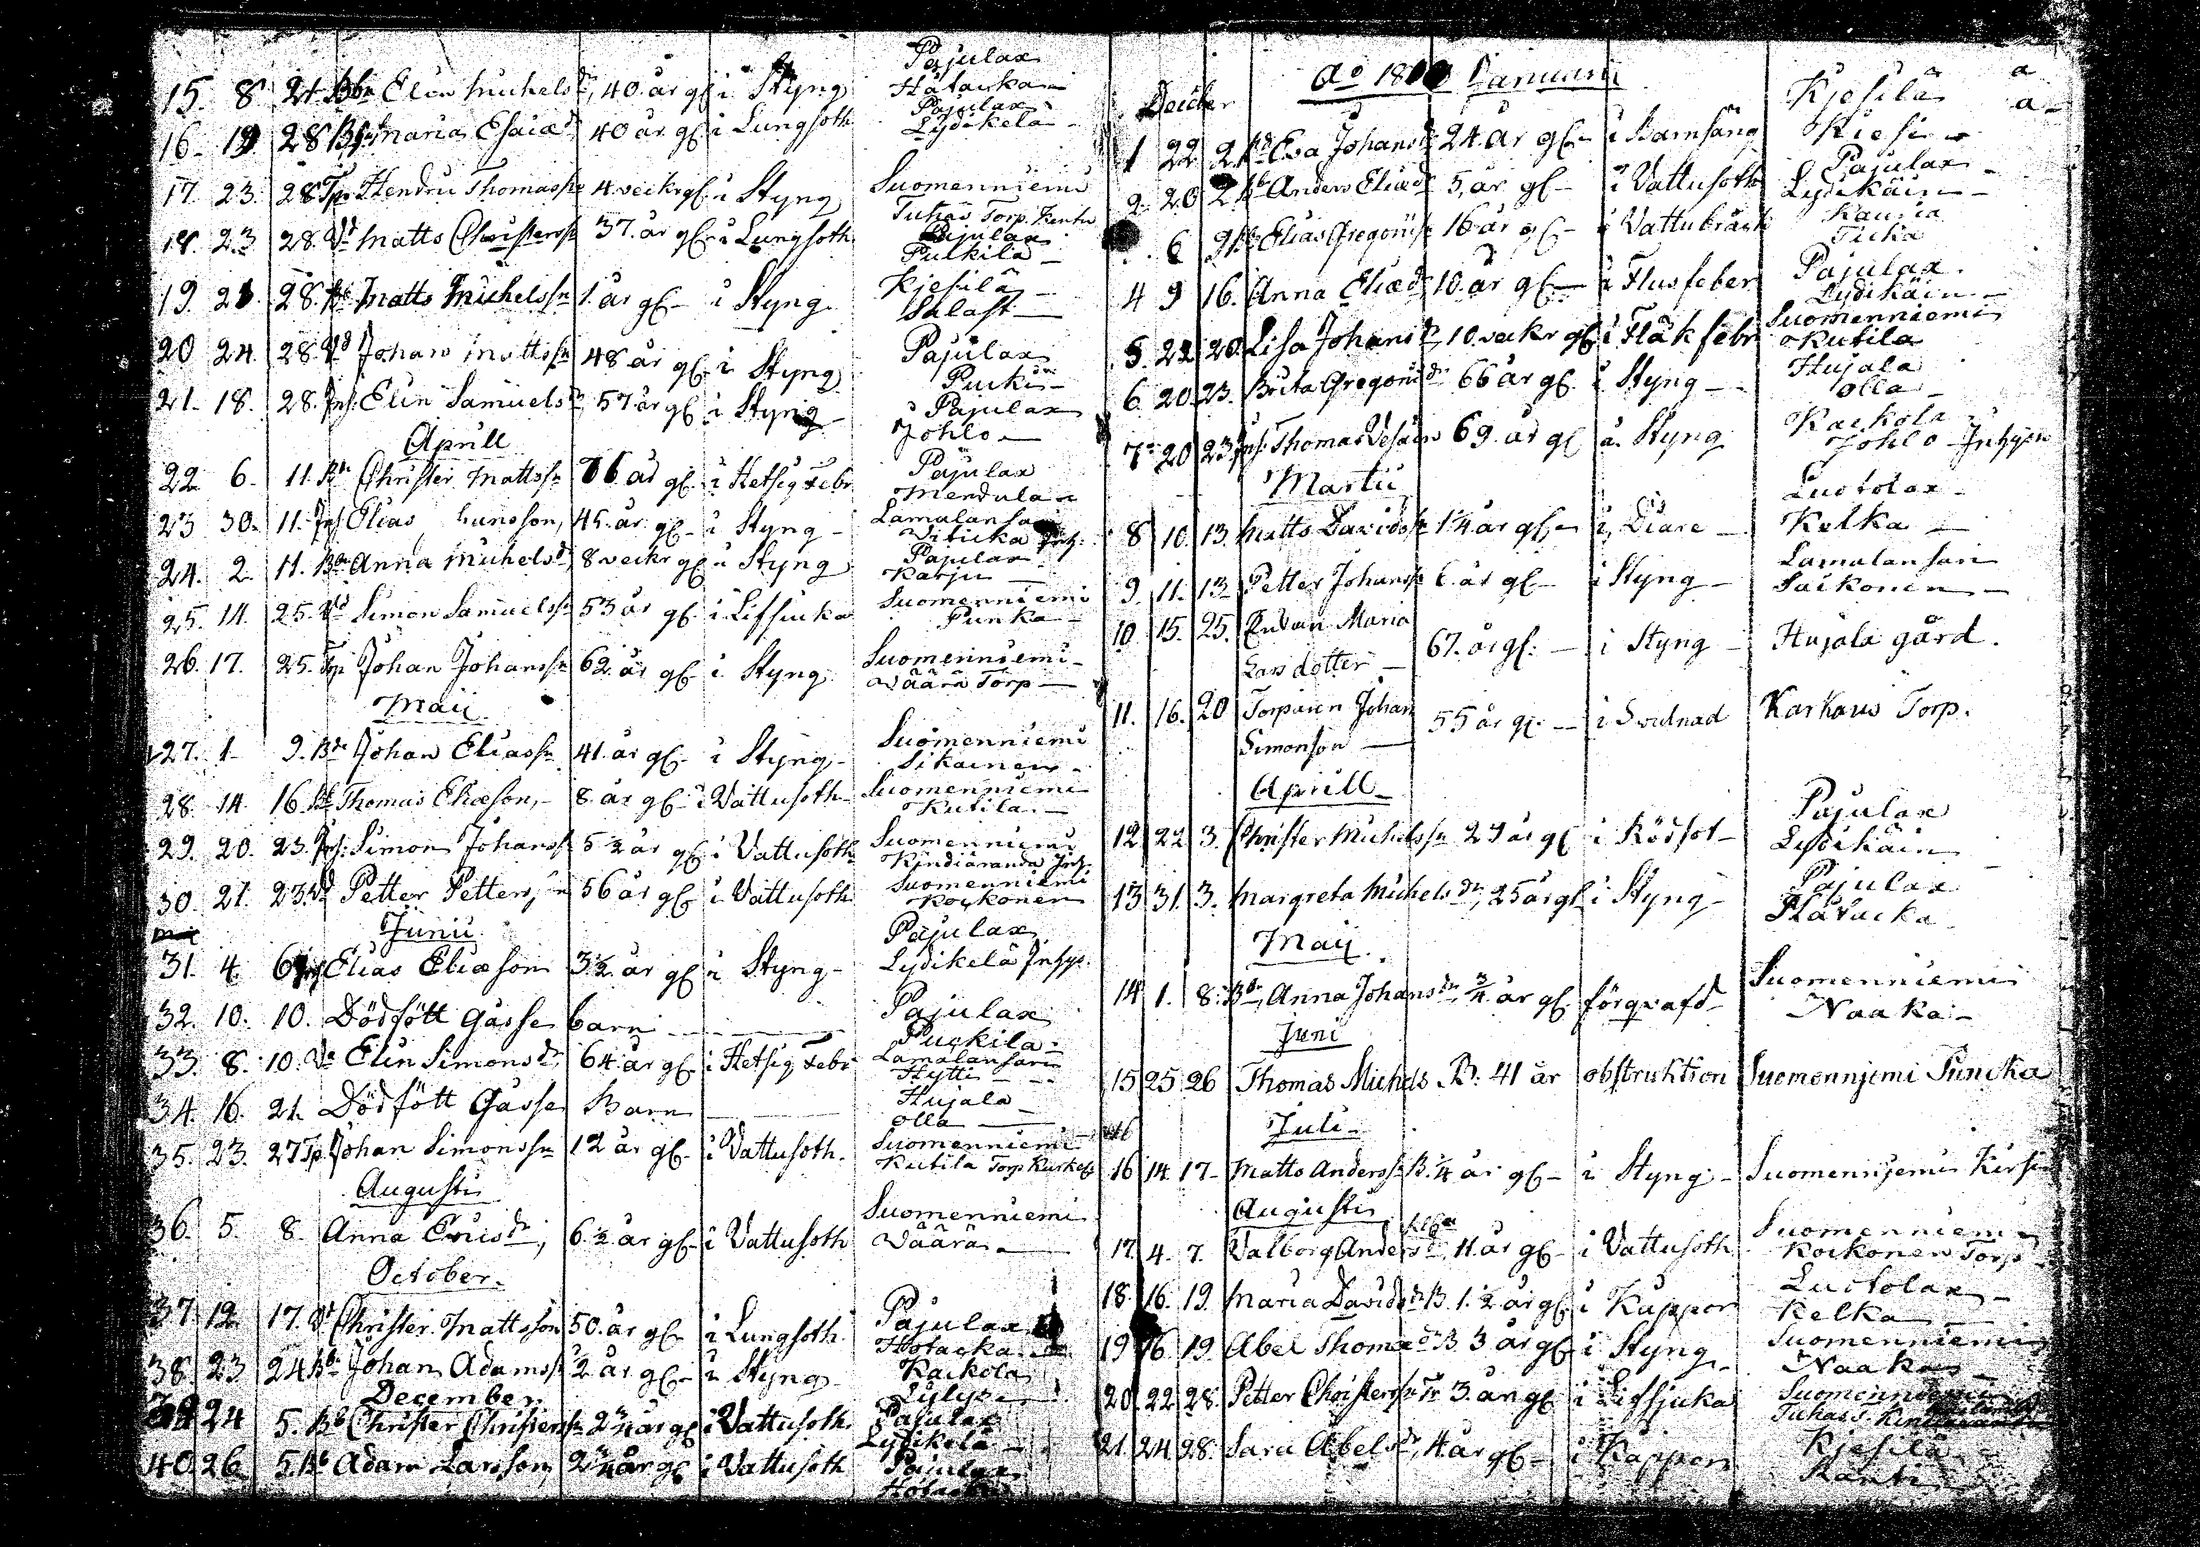 Pajulax
15. 8 24 Bba Elin Michelsdr, 40. år gl. i Styng Hätacka
Pajulax
16. 19 28 Maria Esaiædr 40 år gl. i Lungsoth Lydikelä
Suomenniemi
17. 23. 28 Tps Hendric Thomasson 4. veckr gl. i Styng Tuhas Torp.
18. 23 28. Matts Christersson 37. år gl. i Lungsoth Pajulax
Pulkila
19. 21. 28. Matts Michelsson 1. år gl. i Styng. Kjesilä
Salast
20 24. 28. Johan Mattsson 48 år gl. i Styng Pajulax
Purki
21. 18. 28. Inh. Elin Samuelsdr 57. år gl. i Styng Pajulax
Johlo
Aprill
22. 6. 11. Bn Christer Mattsson 76 år gl. i Hetsig Febr Pajulax
Mendula
23 30. 11. Inh Elias hansson, 45. år gl. i Styng Lamalansa
Inh.
24. 2 11. Anna Michelsdr, 8 veckr gl. i Styng Pajulax
Karju
25. 14. 25. Simon Samuelsson 53 år gl. i Lifsiuka Suomenniemi
Punka
26. 17. 25. Tp Johan Johansson 62 år gl. i Styng Suomenniemi
Wäärä Torp
Maij
27. 1 9. Johan Eliasson 41. år gl. i Styng Suomenniemi
Sikainen
28. 14. 16. Thomas Eliæson, 8. år gl. i Vattusoth Suomenniemi
Kutila.
29. 20. 23. Inh. Simon Johansson 5 ½ år gl. i Vattusoth Suomenniemi
Kindiäranda Inh.
30. 21. 23. Petter Pettersson 56 år gl. i Vattusoth Suomenniemi
Koikonen
Junii
Pajulax
31. 4. 6 Elias Eliæson 3½ år gl. i Styng Lydikelä Inhys.
32. 10. 10. Dödfött Gasse barn Pajulax
Purkila
33. 8. 10. Elin Simonsdr, 64. år gl. i Hetsig Febr Lamalansari
Hytti
34. 16. 21. Dödfött Gasse Barn Hujala
Olla
35. 23. 27 Tp. Johan Simonsson 12 år gl. i Vattusoth. Suomenniemi
Kutila Torp
Augusti
36. 5. 8. Anna Ericsdr, 6 ½ år gl. i Vattusoth Suomenniemi
Wäärä
October.
37. 12. 17. Christer Mattsson 50. år gl. i Lungsoth. Pajulax
Hotacka
38. 23 24 Johan Adamsson ½ år gl. i Styng Kackola
December
24 5. Christer Christersson 2 ¾ år gl. i Vattusoth Pajulax
Lydikelä
40. 26. 5. Adam Larsson 2 ¾ år gl. i Vattusoth Pajulax
Ao 1800 Januarii
Kjesilä
1 22 2 Eva Johansdr 24. år gl. i Barnsäng
2. 20 2 Anders Eliæson 5. år gl. i Vattusoth Pajulax
Lydikäin
6 Elias Gregorisson 16 år gl. i Vattubråck Kauria
Ticka
4 9 16. Anna Eliædr 10. år gl. i Flusfeber Pajulax.
Lydikäin
5. 22 20 Lisa Johansdr, 10. veckr gl. i Fläkfebr Suomenniemi
Kutila
6. 20 23. Brita Gregorisdr 66 år gl. i Styng Hujala
Olla
7. 20 23. Inh. Thomas Vesain 69. år gl. i Styng Kackola
Johlo Inhysn
Martii
8 10. 13. Matts Davidsson 1¼ år gl. i Diare Luotolax
Kelka
9. 11. 13. Petter Johansson 6. år gl. i Styng Lamalansari
Saikonen
10 15. 25. Enkan Maria
Larsdotter 67. år gl. i Styng Hujala gård.
11. 16. 20 Torparen Johan
Simonson 55 år gl. i Svulnad Karhaus Torp.
Aprill
12 22 3. Christer Michelsson 29 år gl. i Rödsot Pajulax
Lydikäin
13 31. 3. Margreta Michelsdr, 25 år gl. i Styng Pajulax
Hätacka
Maij.
14 1. 8. Anna Johansdr, ¾ år gl. förqvafd Suomenniemi
Naaka
Juni
15 25 26 Thomas Michels B. 41 år obstruktion Suomennjemi Puncka
Juli
16 14. 17 Matts Andersson B. ¼ år gl. i Styng Suomennjemi
Augusti
17. 4. 7. Valborg Andersdr 11. år gl. i Vattusoth Suomenniemi
Koikonen Torp
18. 16. 19. Maria Davidsdr B. 1. ½ år gl. i Kuppor Luotolax
Kelka
19 16 19. Abel Thomædr B. 3 år gl. i Styng Suomenniemi
Naaka
20. 22. 28. Petter Christersson Tr 3. år gl. i Lifsjuka Suomenniemi
Tuhas
21. 24. 28. Sara Abelsdr, 4. år gl. i Koppor Kjesilä